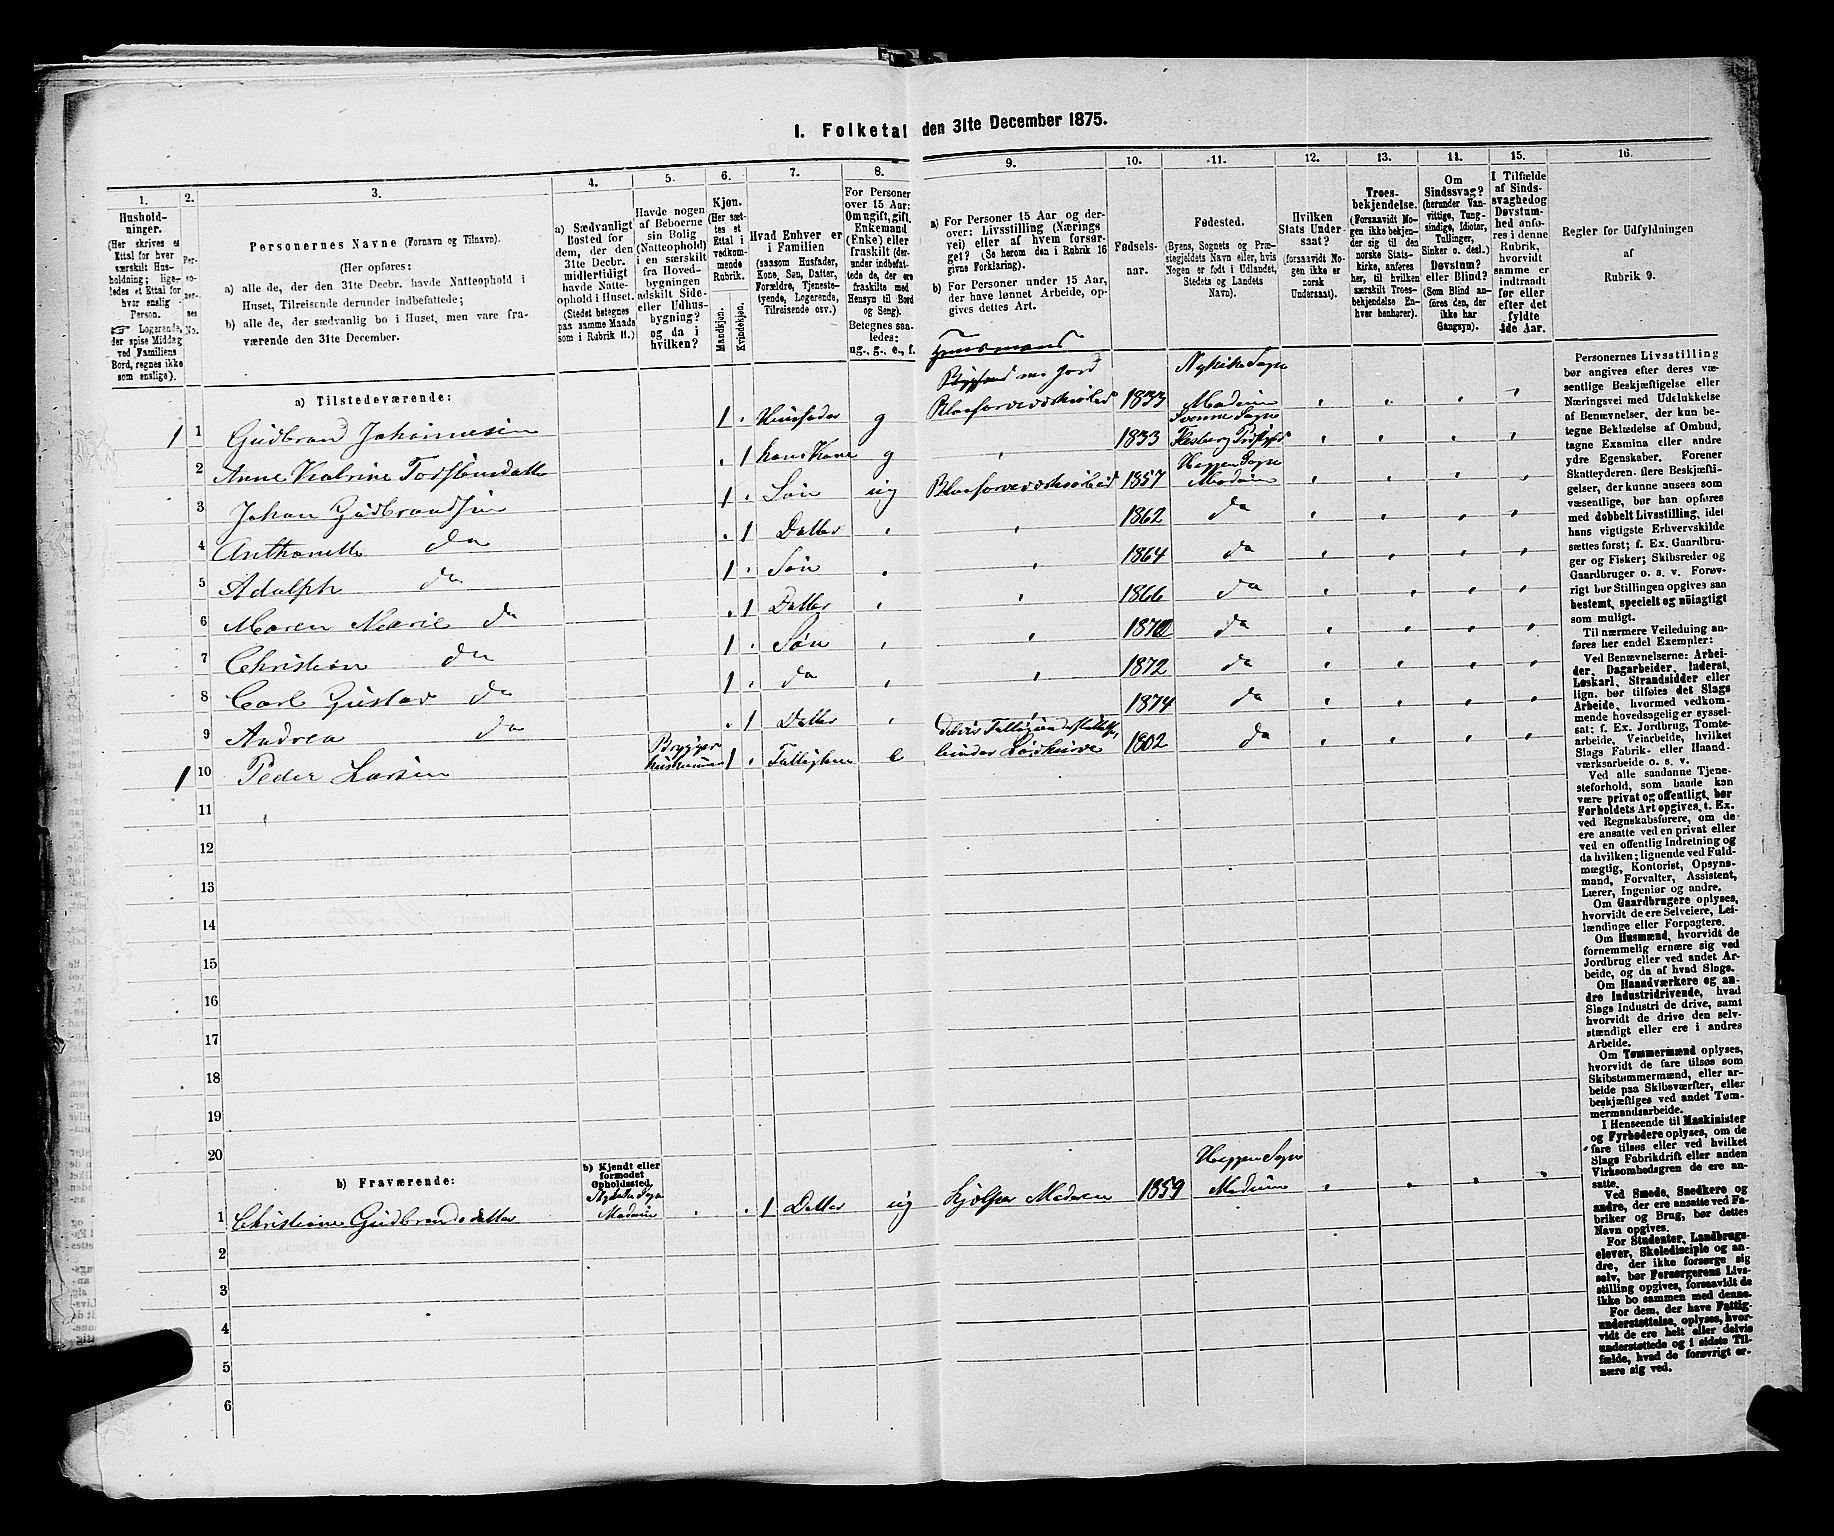 1. Folketal den 31te December 1875.
1.
Hushold-
ninger.
(Her skrives et
Ettal for hver
særskilt Hus-
holdning; lige-
ledes et Ettal for
hver enslig
Person.
☞ Logerende,
der spise Middag
ved Familiens
Bord, regnes ikke
som enslige).
2.
No.
3.
Personernes Navne (Fornavn og Tilnavn).
(Her opføres:
a) alle de, der den 31te Decbr. havde Natteophold i
Huset, Tilreisende derunder indbefattede;
b) alle de, der sædvanlig bo i Huset, men vare fra-
værende den 31te December.
4.
a) Sædvanligt
Bosted for
dem, der den
31te Decbr.
midlertidigt
havde Natte-
ophold i Huset.
(Stedet betegnes
paa samme Maade
som i Rubrik 11.)
5.
Havde nogen
af Beboerne
sin Bolig
(Natteophold)
i en særskilt
fra Hoved-
bygningen
adskilt Side-
eller Udhus-
bygning?
og da i
hvilken?
6.
Kjøn.
(Her sæt-
tes et
Ettal i
vedkom-
mende
Rubrik.
Mandkjøn.
Kvindekjøn.
7.
Hvad Enhver er
i Familien
(saasom Husfader,
Kone, Søn, Datter,
Forældre, Tjeneste-
tyende, Logerende,
Tilreisende osv.)
8.
For Personer
over 15 Aar:
Om ugift, gift,
Enkemand
(Enke) eller
fraskilt (der-
under indbefat-
tede de, der ere
fraskilte med
Hensyn til Bord
og Seng).
Betegnes saa-
ledes:
ug., g., e., f.
9.
a) For Personer 15 Aar og der-
over: Livsstilling (Nærings
vei) eller af hvem forsør-
get? (Se herom den i Rubrik 16
givne Forklaring).
b) For Personer under 15 Aar,
der have lønnet Arbeide, op-
gives dettes Art.
10.
Fødsels-
aar.
11.
Fødested.
(Byens, Sognets og Præ-
stegjeldets Navn eller, hvis
Nogen er født i Udlandet,
Stedets og Landets
Navn).
12.
Hvilken
Stats Under-
saat?
(forsaavidt No-
gen ikke er
norsk
Undersaat).
13.
Troes-
bekjendelse.
(Forsaavidt No-
gen ikke bekjen-
der sig til den
norske Stats-
kirke, anføres
her, til hvilken
særskilt Troes-
bekjendelse En-
hver henhører).
14.
Om
Sindssvag?
(herunder Van-
vittige, Tung-
sindige, Idioter,
Tullinger,
Sinker o. desl.)
Døvstum?
eller Blind?
(Som Blind an-
føres den, der
ikke har
Gangsyn).
15.
I Tilfælde
af Sinds-
svaghed og
Døvstum-
hed anfø-
res i denne
Rubrik,
hvorvidt
samme er
indtraadt
før eller
efter det
fyldte
4de Aar.
16.
Regler for Udfyldningen
af
Rubrik 9.
a) Tilstedeværende:
Nykirke Sogn
1 1 Gudbrand Johannesen 1 Husfader g 1833 Modum
2 Anne Katrine Torstensdatter 1 hans Kone g 1833 Flesberg
3 Johan Gudbrandsen 1 Søn ug 1857 Heggen Sogn Modum
4 Anthonette do 1 Datter 1862 do
5 Adolph do 1 Søn 1864 do
6 Maren Marie do 1 Datter 1866 do
7 Christian do 1 Søn 1870 do
8 Carl Gustav do 1 do 1872 do
9 Andrea do 1 Datter 1874 do
1 10 Peder Larsen 1 e 1802 do
11
12
13
14
15
16
17
18
19
20
b) Fraværende:
b) Kjendt eller
formodet
Opholdssted.
1 Christine Gudbrandsdatter Nykirke Sogn Modum 1 Datter ug hjælper Moderen 1859 Heggen Sogn Modum
2
3
4
5
6
Personernes Livsstilling
bør angives efter deres væ-
sentlige Beskjæftigelse eller
Næringsvei med Udelukkelse
af Benævnelser, der kun be-
tegne Beklædelse af Ombud,
tagne Examina eller andre
ydre Egenskaber. Forener
Skatteyderen flere Beskjæfti-
gelser, der kunne ansees som
væsentlige, bør han opføres
med dobbelt Livsstilling, idet
hans vigtigste Erhvervskilde
sættes først; f. Ex. Gaardbru-
ger og Fisker; Skibsreder og
Gaardbruger o. s. v. Forøv-
rigt bør Stillingen opgives saa
bestemt, specielt og nöiagtigt
som muligt.
Til nærmere Veiledning an-
føres her endel Exempler:
Ved Benævnelserne: Arbei-
der, Dagarbeider, Inderst,
Løskarl, Strandsidder eller
lign. bør tilføies det Slags
Arbeide, hvormed vedkom-
mende hovedsagelig er syssel-
sat; f. Ex. Jordbrug, Tomte-
arbeide, Veiarbeide, hvilket
Slags Fabrik- eller Haand-
værksarbeide o. s. v.
Ved alle saadanne Tjene-
steforhold, som baade kan
være privat og offentligt, bør
Forholdets Art opgives, t. Ex.
ved Regnskabsførere, om de
ere ansatte ved en privat eller
ved en offentlig Indretning og
da hvilken; lignende ved Fuld-
mægtig, Kontorist, Opsyns-
mand, Forvalter, Assistent,
Lærer, Ingeniør og andre.
Om Gaardbrugere oplyses,
hvorvidt de ere Selveiere, Lei-
lændinge eller Forpagtere.
Om Husmænd, hvorvidt de
fornemmelig ernære sig ved
Jordbrug eller ved andet Ar-
beide, og da af hvad Slags.
Om Haandværkere og an-
dre Industridrivende, hvad
Slags Industri de drive, samt
hvorvidt de drive den selv-
stændigt eller ere i andres
Arbeide.
Om Tømmermænd oplyses,
hvorvidt de fare tilsøs som
Skibstømmermænd, eller ar-
beide paa Skibsværfter, eller
beskjæftiges ved andet Tøm-
mermandsarbeide.
I Henseende til Maskinister
og Fyrbødere oplyses, om de
fare tilsøs eller ved hvilket
Slags Fabrikdrift eller anden
Virksomhedsgren de ere an-
satte.
Ved Smede, Snedkere og
andre, der ere ansatte ved Fa-
briker og Brug, bør dettes
Navn opgives.
For Studenter, Landbrugs-
elever, Skoledisciple og an-
dre, der ikke forsørge sig
selv, bør Forsørgerens Livs-
stilling opgives, forsaavidt de
ikke bo sammen med denne.
For dem, der have Fattig-
understøttelse, oplyses, hvor-
vidt de ere helt eller delvis
understøttede og i sidste Til-
fælde, hvad de forøvrigt er-
nære sig ved.